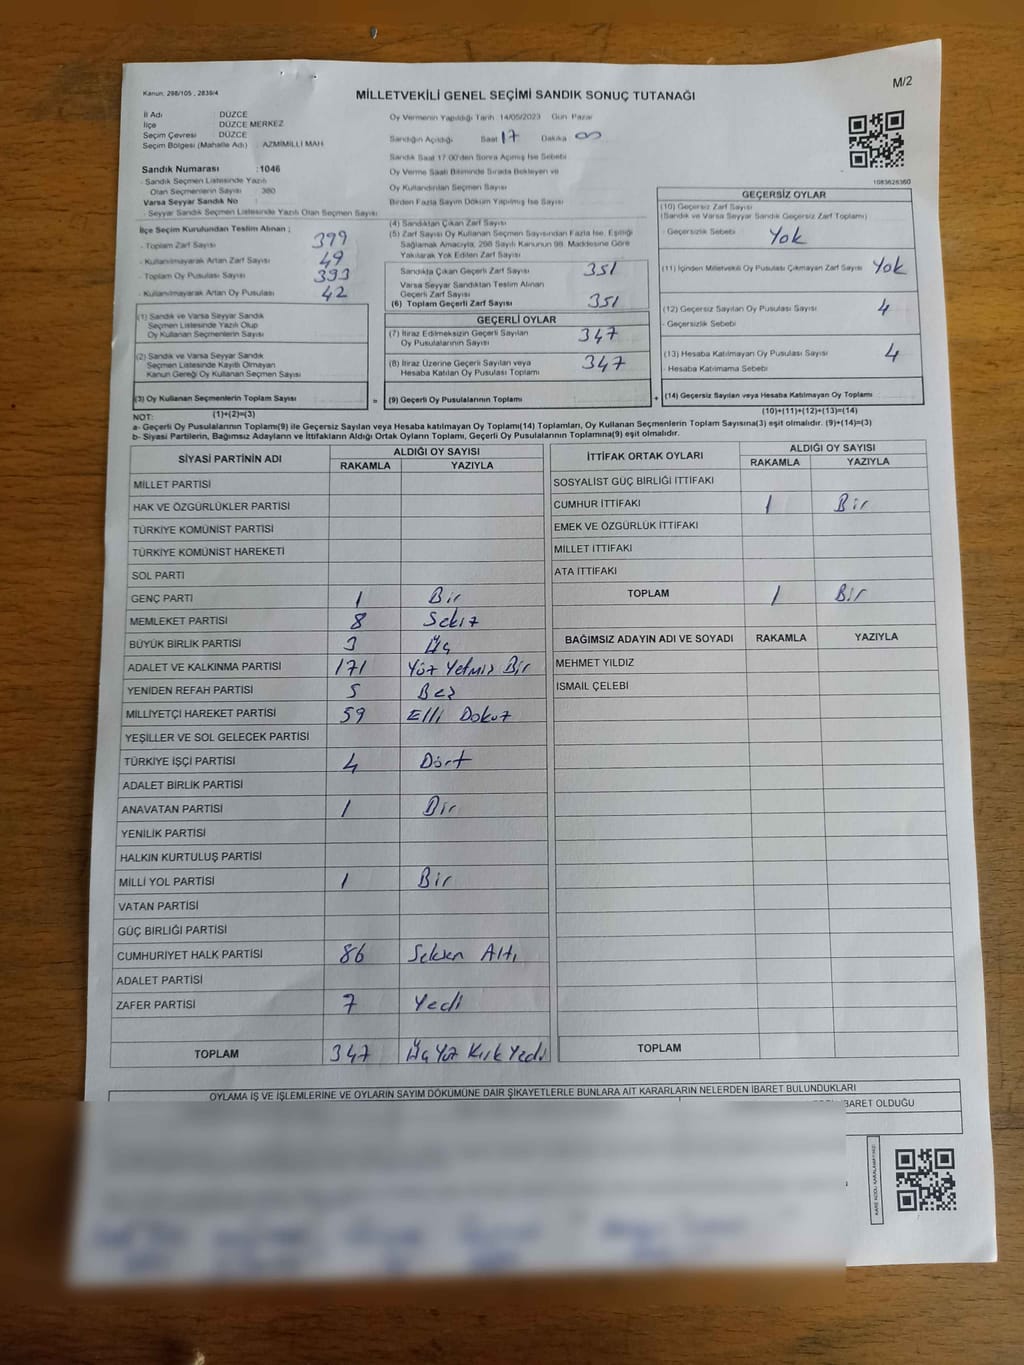 Kanun: 298/105 , 2839/4
M/2
MİLLETVEKİLİ GENEL SEÇİMİ SANDIK SONUÇ TUTANAĞI
İl Adı DÜZCE
İlçe DÜZCE MERKEZ
Seçim Çevresi : DÜZCE
Seçim Bölgesi (Mahalle Adı) : AZMİMİLLİ MAH
Sandık Numarası :1046
- Sandık Seçmen Listesinde Yazılı
Olan Seçmenlerin Sayısı 380
Varsa Seyyar Sandık No
- Seyyar Sandık Seçmen Listesinde Yazılı Olan Seçmen Sayısı
İlçe Seçim Kurulundan Teslim Alınan ;
- Toplam Zarf Sayısı 399
- Kullanılmayarak Artan Zarf Sayısı 49
- Toplam Oy Pusulası Sayısı 393
- Kullanılmayarak Artan Oy Pusulası 42
(1) Sandık ve Varsa Seyyar Sandık
Seçmen Listesinde Yazılı Olup
Oy Kullanan Seçmenlerin Sayısı
(2) Sandık ve Varsa Seyyar Sandık
Seçmen Listesinde Kayıtlı Olmayan
Kanun Gereği Oy Kullanan Seçmen Sayısı
(3) Oy Kullanan Seçmenlerin Toplam Sayısı =
(1)+(2)=(3)
Oy Vermenin Yapıldığı Tarih 14/05/2023 Gün Pazar
Sandığın Açıldığı Saat 17 Dakika 00
Sandık Saat 17:00'den Sonra Açılmış İse Sebebi
Oy Verme Saati Bitiminde Sırada Bekleyen ve
Oy Kullandırılan Seçmen Sayısı
Birden Fazla Sayım Döküm Yapılmış İse Sayısı
(4) Sandıktan Çıkan Zarf Sayısı
(5) Zarf Sayısı Oy Kullanan Seçmen Sayısından Fazla İse, Eşitliği
Sağlamak Amacıyla, 298 Sayılı Kanunun 98. Maddesine Göre
Yakılarak Yok Edilen Zarf Sayısı
Sandıkta Çıkan Geçerli Zarf Sayısı 351
Varsa Seyyar Sandıktan Teslim Alınan
Geçerli Zarf Sayısı
(6) Toplam Geçerli Zarf Sayısı 351
GEÇERLİ OYLAR
(7) İtiraz Edilmeksizin Geçerli Sayılan
Oy Pusulalarının Sayısı 347
(8) İtiraz Üzerine Geçerli Sayılan veya
Hesaba Katılan Oy Pusulası Toplamı 347
(9) Geçerli Oy Pusulalarının Toplamı +
1083628360
GEÇERSİZ OYLAR
(10) Geçersiz Zarf Sayısı
(Sandık ve Varsa Seyyar Sandık Geçersiz Zarf Toplamı)
- Geçersizlik Sebebi Yok
(11) İçinden Milletvekili Oy Pusulası Çıkmayan Zarf Sayısı Yok
(12) Geçersiz Sayılan Oy Pusulası Sayısı 4
- Geçersizlik Sebebi
(13) Hesaba Katılmayan Oy Pusulası Sayısı 4
- Hesaba Katılmama Sebebi
(14) Geçersiz Sayılan veya Hesaba Katılmayan Oy Toplamı
(10)+(11)+(12)+(13)=(14)
NOT:
a- Geçerli Oy Pusulalarının Toplamı(9) ile Geçersiz Sayılan veya Hesaba katılmayan Oy Toplamı(14) Toplamları, Oy Kullanan Seçmenlerin Toplam Sayısına(3) eşit olmalıdır. (9)+(14)=(3)
b- Siyasi Partilerin, Bağımsız Adayların ve İttifakların Aldığı Ortak Oyların Toplamı, Geçerli Oy Pusulalarının Toplamına(9) eşit olmalıdır.
SİYASİ PARTİNİN ADI ALDIĞI OY SAYISI
RAKAMLA YAZIYLA
MİLLET PARTİSİ
HAK VE ÖZGÜRLÜKLER PARTİSİ
TÜRKİYE KOMÜNİST PARTİSİ
TÜRKİYE KOMÜNİST HAREKETİ
SOL PARTİ
GENÇ PARTİ 1 Bir
MEMLEKET PARTİSİ 8 Sekiz
BÜYÜK BİRLİK PARTİSİ 3 Üç
ADALET VE KALKINMA PARTİSİ 171 Yüz Yetmiş Bir
YENİDEN REFAH PARTİSİ 5 Beş
MİLLİYETÇİ HAREKET PARTİSİ 59 Elli Dokuz
YEŞİLLER VE SOL GELECEK PARTİSİ
TÜRKİYE İŞÇİ PARTİSİ 4 Dört
ADALET BİRLİK PARTİSİ
ANAVATAN PARTİSİ 1 Bir
YENİLİK PARTİSİ
HALKIN KURTULUŞ PARTİSİ
MİLLİ YOL PARTİSİ 1 Bir
VATAN PARTİSİ
GÜÇ BİRLİĞİ PARTİSİ
CUMHURİYET HALK PARTİSİ 86 Seksen Altı
ADALET PARTİSİ
ZAFER PARTİSİ 7 Yedi
TOPLAM 347 Üç Yüz Kırk Yedi
İTTİFAK ORTAK OYLARI ALDIĞI OY SAYISI
RAKAMLA YAZIYLA
SOSYALİST GÜÇ BİRLİĞİ İTTİFAKI
CUMHUR İTTİFAKI 1 Bir
EMEK VE ÖZGÜRLÜK İTTİFAKI
MİLLET İTTİFAKI
ATA İTTİFAKI
TOPLAM 1 Bir
BAĞIMSIZ ADAYIN ADI VE SOYADI RAKAMLA YAZIYLA
MEHMET YILDIZ
İSMAİL ÇELEBİ
TOPLAM
OYLAMA İŞ VE İŞLEMLERİNE VE OYLARIN SAYIM DÖKÜMÜNE DAİR ŞİKAYETLERLE BUNLARA AİT KARARLARIN NELERDEN İBARET BULUNDUKLARI
İBARET OLDUĞU